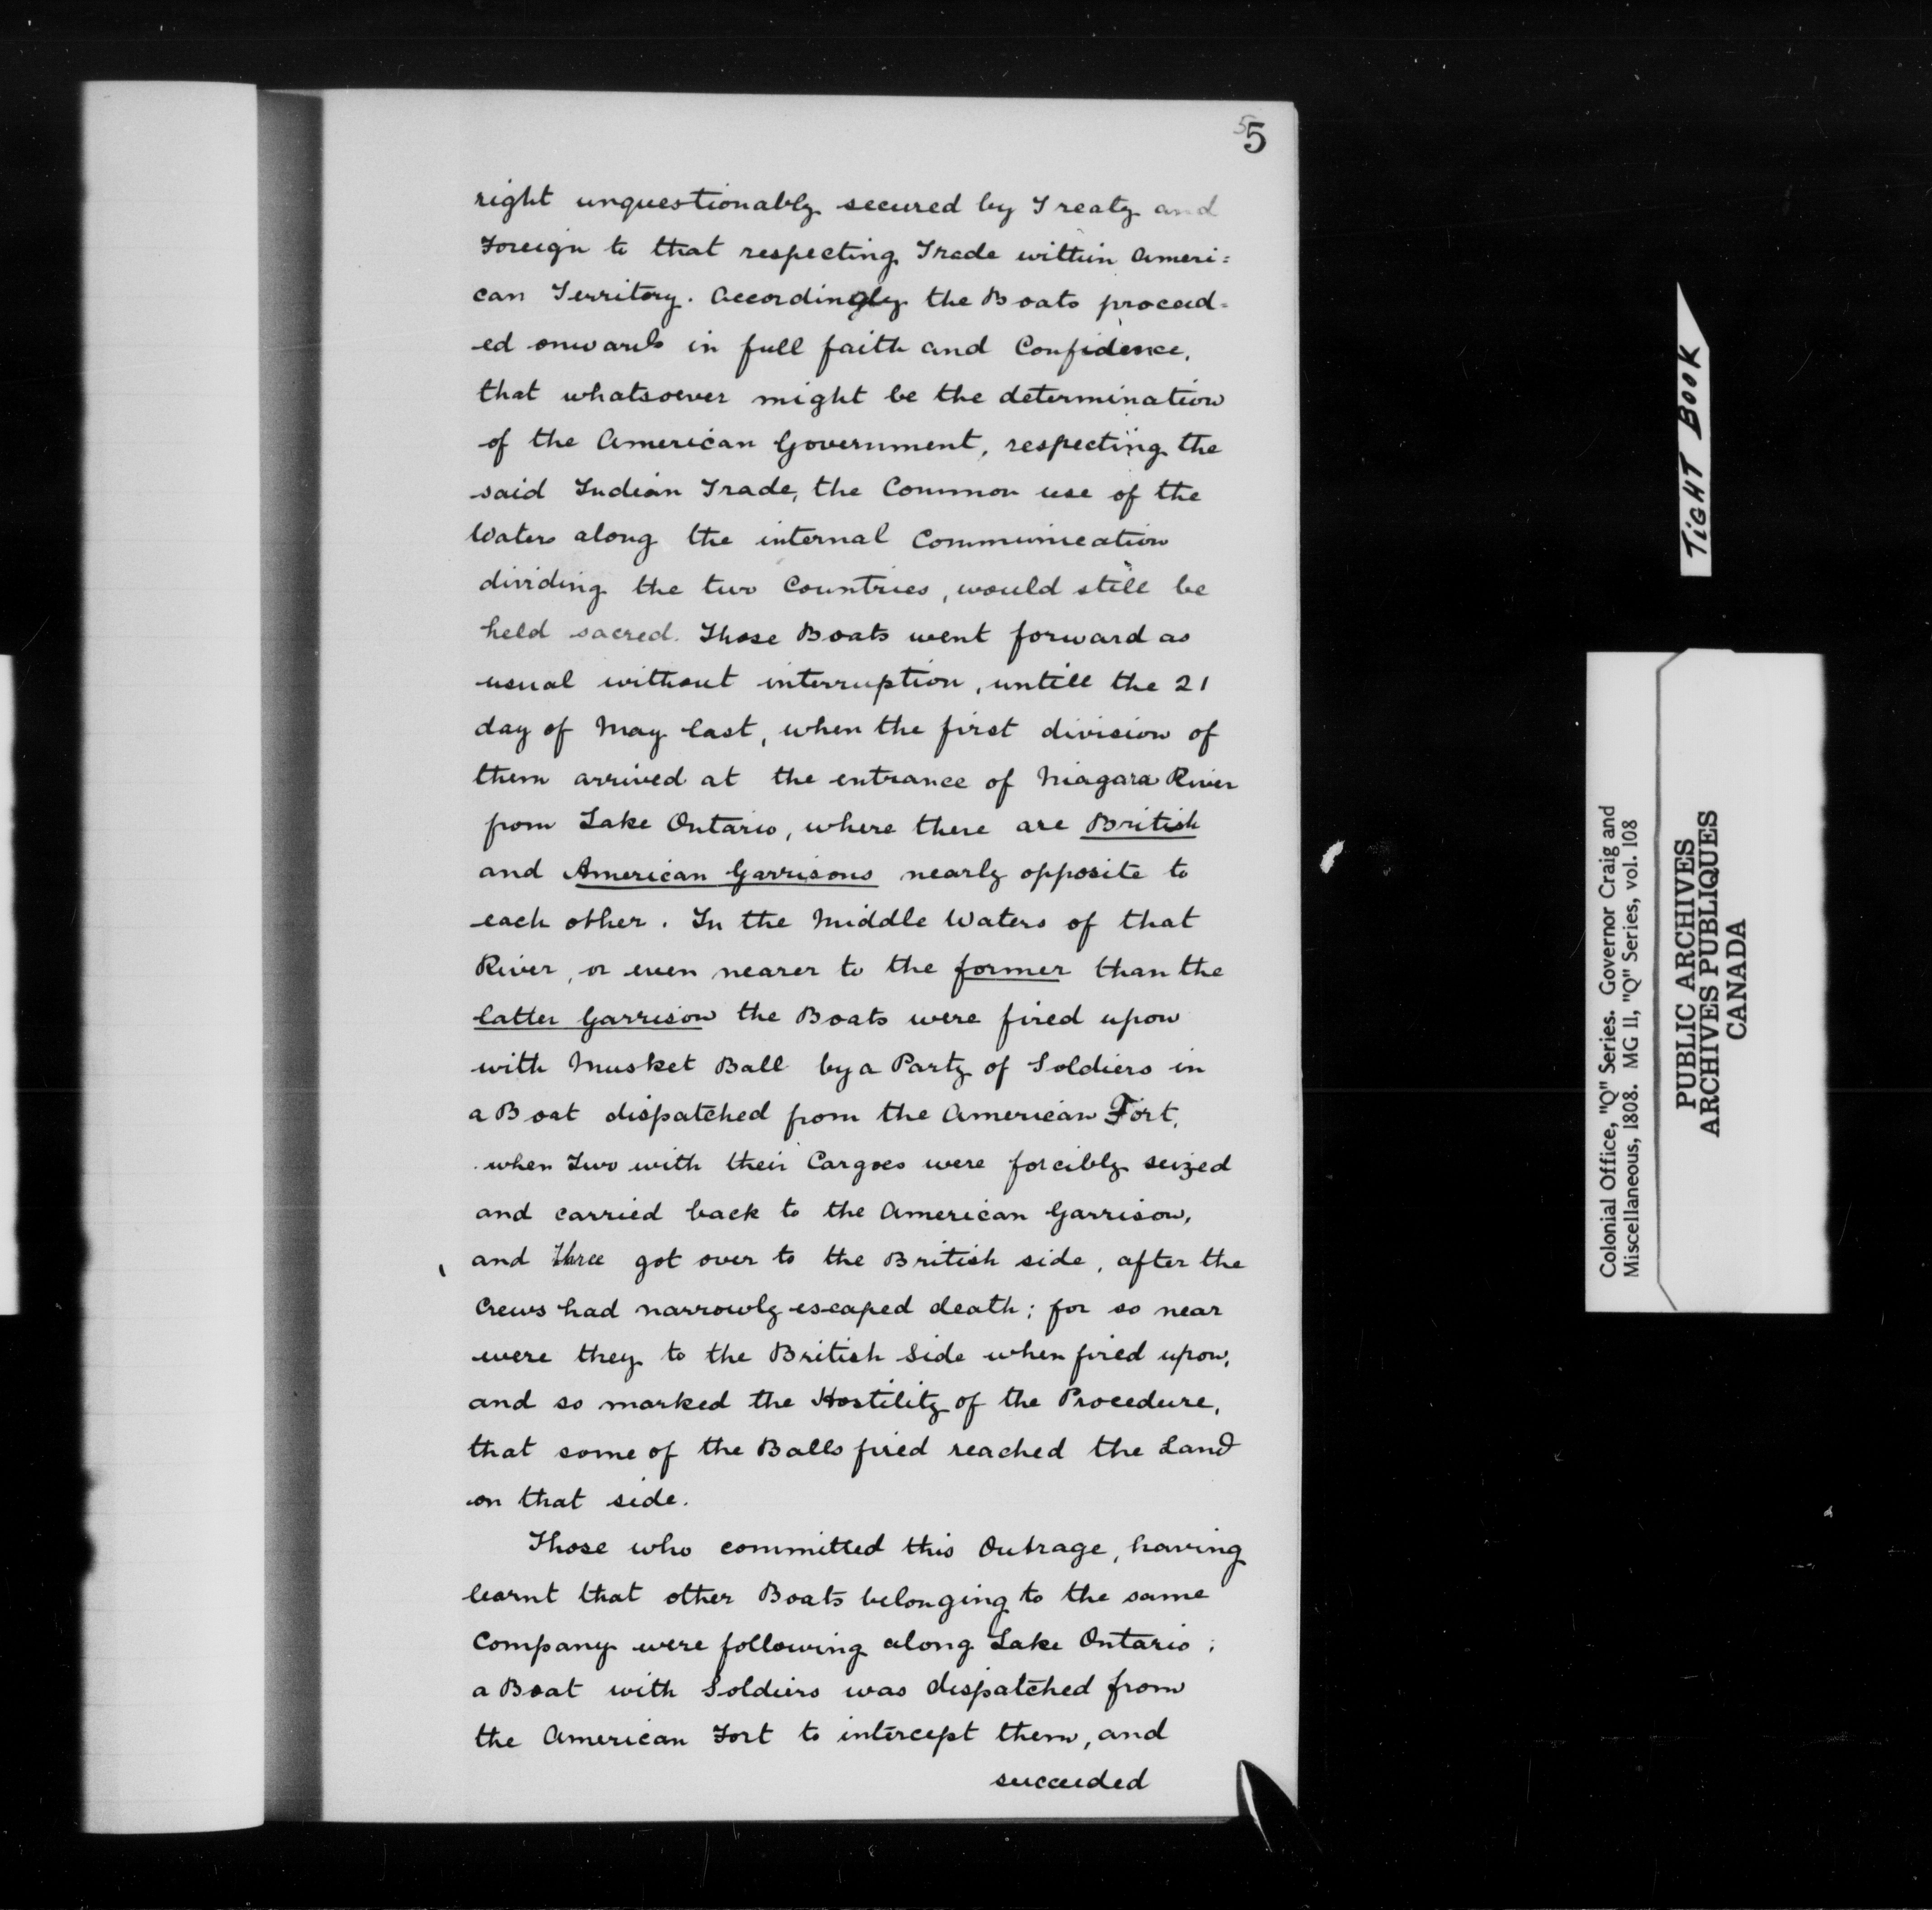 5
5
right unquestionably secured by Treaty and
Foreign to that respecting Trade within Ameri=
can Territory. Accordingly the Boats proceed=
ed onwards in full faith and Confidence,
that whatsoever might be the determination
of the American Government, respecting the
said Indian Trade, the Common use of the
Waters along the internal Communication
dividing the two Countries, would still be
held sacred. Those Boats went forward as
usual without interruption, untill the 21
day of May last, when the first division of
them arrived at the entrance of Niagara River
from Lake Ontario, where there are British
and American Garrisons nearly opposite to
each other. In the Middle Waters of that
River, or even nearer to the former than the
latter Garrison the Boats were fired upon
with Musket Ball by a Party of Soldiers in
a Boat dispatched from the American Fort,
when Two with their Cargoes were forcibly seized
and carried back to the American Garrison,
and three got over to the British side, after the
Crews had narrowly escaped death; for so near
were they to the British Side when fired upon,
and so marked the Hostility of the Procedure,
that some of the Balls fired reached the Land
on that side.
Those who committed this Outrage, having
learnt that other Boats belonging to the same
Company were following along Lake Ontario;
a Boat with Soldiers was dispatched from
the American Fort to intercept them, and
succeeded
TIGHT BOOK
Colonial Office, "Q" Series. Governor Craig and
Miscellaneous, 1808. MG 11, "Q" Series, vol. 108
PUBLIC ARCHIVES
ARCHIVES PUBLIQUES
CANADA